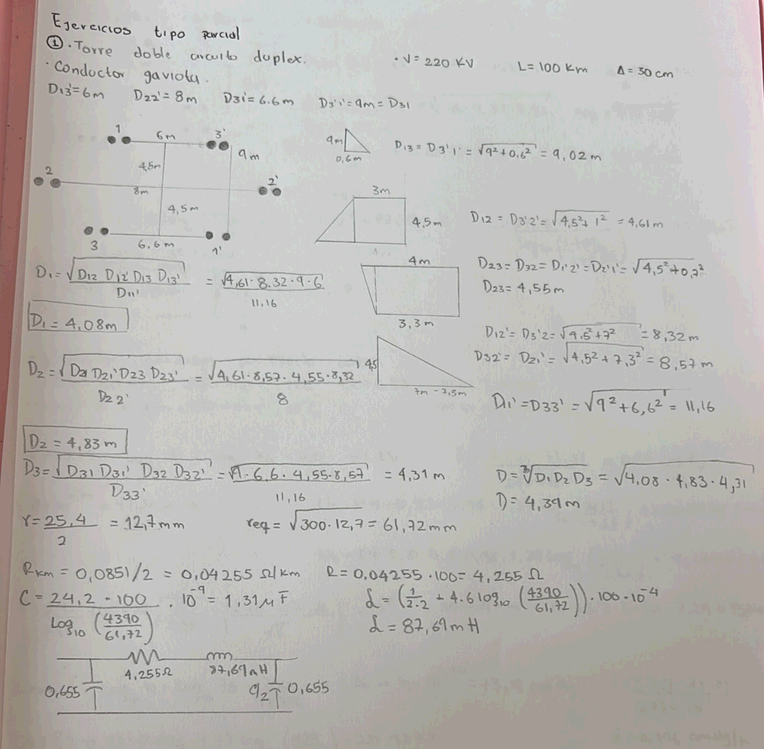 Ejercicios tipo parcial
① · Torre doble circuito duplex. · V = 220 KV L = 100 Km Δ = 30 cm
· Conductor gaviota.
D13' = 6m D22' = 8m D31' = 6.6m D3'1' = 9m = D31
1 6m 3'
4,5m 9m
2 8m 2'
4,5m
3 6,6m 1'
9m 0,6m D13 = D3'1' = √9²+0,6² = 9,02m
3m 4,5m D12 = D3'2' = √4,5²+1² = 4,61m
4m 3,3m D23 = D32 = D1'2' = D2'1' = √4,5²+0,7²
D23 = 4,55m
D1 = √D12 D12' D13 D13' / D11' = √4,61·8.32·9·6 / 11,16
D1 = 4,08m
D12' = D3'2 = √4.5²+7² = 8,32m
D32' = D21' = √4,5²+7,3² = 8,57m
4,5 7m - 7,3m
D2 = √D21 D21' D23 D23' / D22' = √4,61·8,57·4,55·8,32 / 8
D11' = D33' = √9²+6,6² = 11,16
D2 = 4,83m
D3 = √D31 D31' D32 D32' / D33' = √9·6,6·4,55·8,57 / 11,16 = 4,31m
D = ∛D1 D2 D3 = √4,08·4,83·4,31
D = 4,39m
r = 25,4 / 2 = 12,7mm req = √300·12,7 = 61,72mm
RKm = 0,0851/2 = 0,04255 Ω/km R = 0,04255·100 = 4,255 Ω
C = 24,2·100 / Log10 (4390 / 61,72) · 10⁻⁹ = 1,31 μF
L = (1 / 2.2 + 4.6 log10 (4390 / 61,72)) · 100·10⁻⁴
L = 87,69 mH
4,255Ω 87,69mH
0,655 C/2 0,655